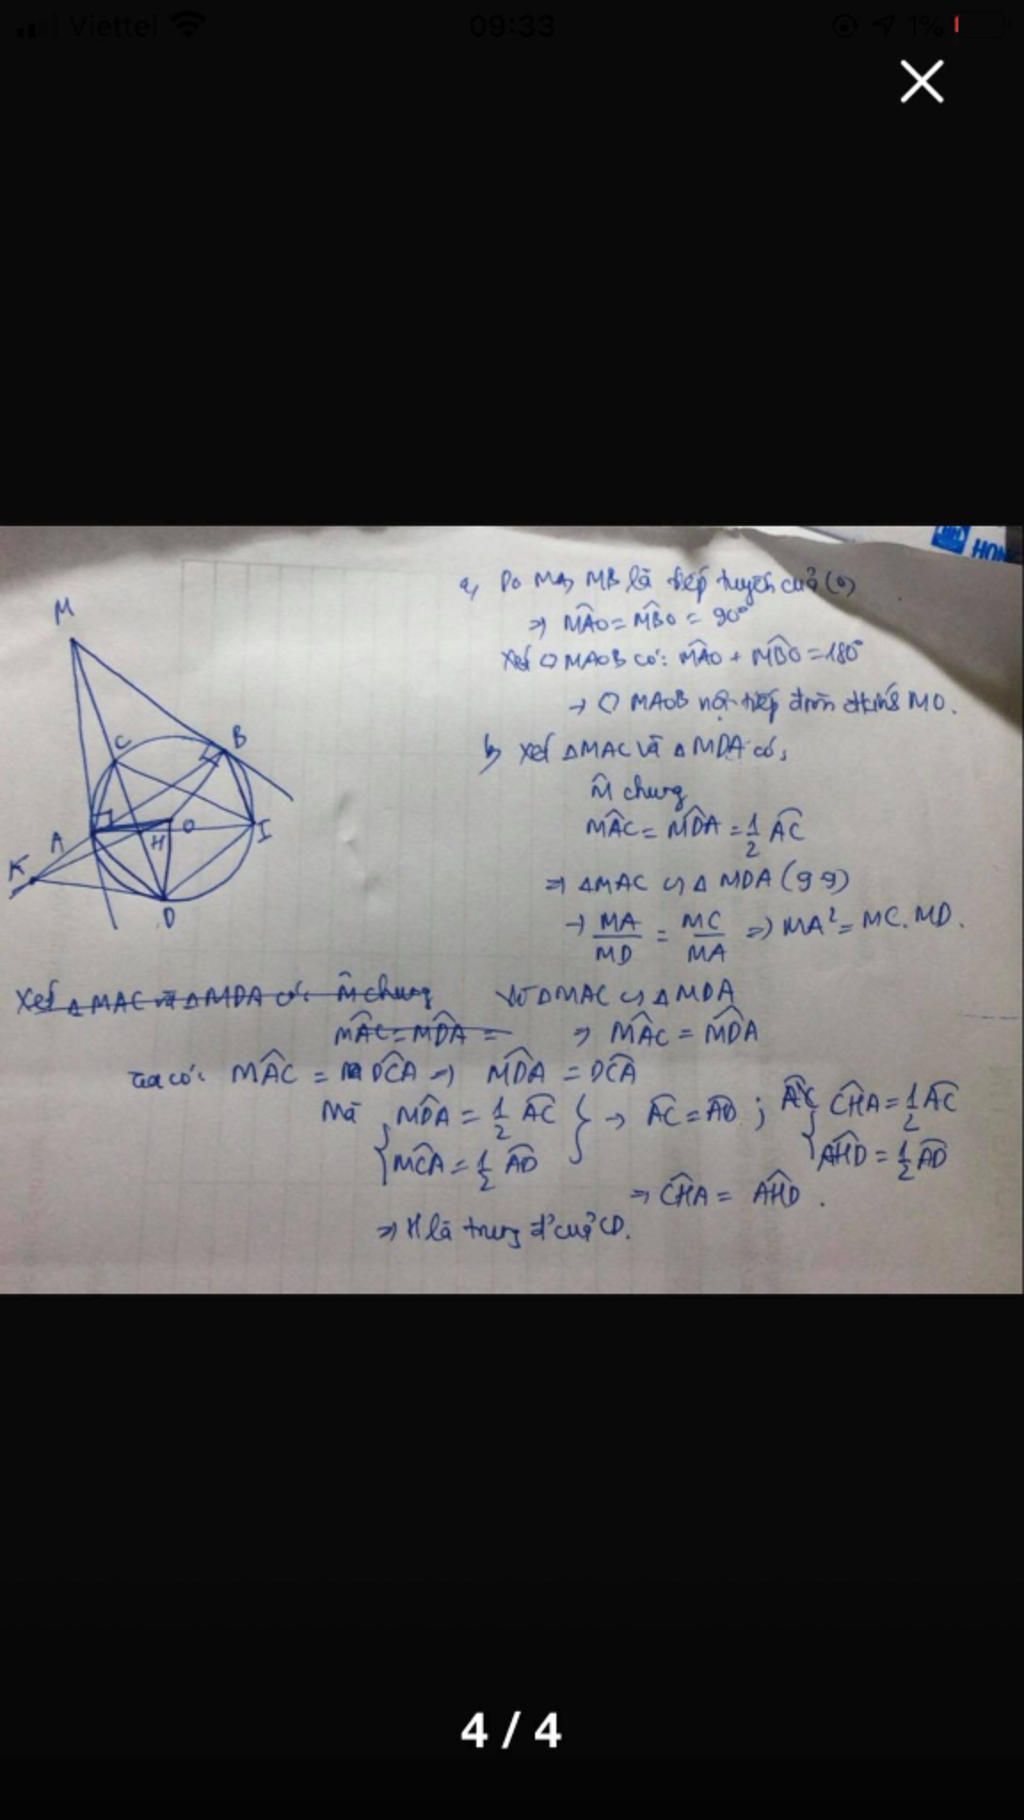 Viettel 09:33 1%
HON
a, Do MA, MB là tiếp tuyến của (O)
⇒ M̂AO = M̂BO = 90°
Xét ◇ MAOB có: M̂AO + M̂BO = 180°
→ ◇ MAOB nội tiếp đường kính MO.
b, Xét △MAC và △MDA có,
M̂ chung
M̂AC = M̂DA = 1/2 AC
⇒ △MAC ∽ △MDA (gg)
→ MA/MD = MC/MA ⇒ MA² = MC.MD.
Xét △MAC và △MDA có M̂ chung
M̂AC = M̂DA =
Vì △MAC ∽ △MDA
⇒ M̂AC = M̂DA
Ta có: M̂AC = DĈA ⇒ M̂DA = DĈA
Mà { M̂DA = 1/2 AC
M̂CA = 1/2 AD } → AC = AD ;
{ ĈHA = 1/2 AC
ÂHD = 1/2 AD
⇒ ĈHA = ÂHD.
⇒ H là trung đ' của CD.
M
C
B
A
O
H
I
K
D
4 / 4